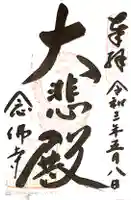 奉拝 令和三年五月八日
大悲殿
念佛寺